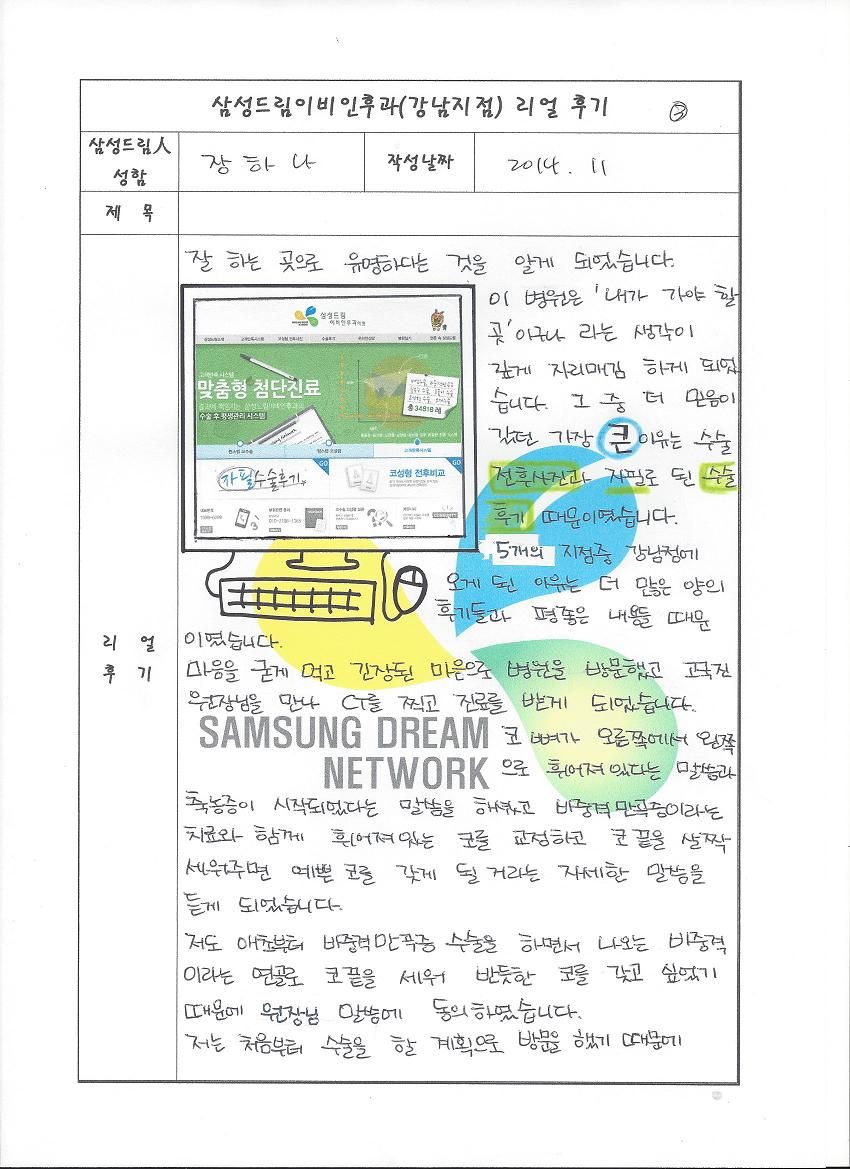 삼성드림이비인후과(강남지점) 리얼 후기 ②
삼성드림人
성함
장하나
작성날짜
2014. 11
제 목
잘 하는 곳으로 유명하다는 것을 알게 되었습니다.
삼성드림
이비인후과의원
맞춤형 첨단진료
수술 후 평생관리 시스템
총 34918 례
자필수술후기
GO
코성형 전후비교
GO
이 병원은 '내가 가야 할
곳'이구나 라는 생각이
깊게 자리매김 하게 되었
습니다. 그 중 더 믿음이
갔던 가장 큰 이유는 수술
전후사진과 자필로 된 수술
후기 때문이였습니다.
5개의 지점중 강남점에
오게 된 이유는 더 많은 양의
후기들과 평좋은 내용들 때문
리 얼
후 기
이였습니다.
마음을 굳게 먹고 긴장된 마음으로 병원을 방문했고 고국진
원장님을 만나 CT를 찍고 진료를 받게 되었습니다.
SAMSUNG DREAM
NETWORK
코 뼈가 오른쪽에서 왼쪽
으로 휘어져 있다는 말씀과
축농증이 시작되었다는 말씀을 해셨고 비중격만곡증이라는
치료와 함께 휘어져있는 코를 교정하고 코 끝을 살짝
세워주면 예쁜 코를 갖게 될 거라는 자세한 말씀을
듣게 되었습니다.
저도 애초부터 비중격만곡증 수술을 하면서 나오는 비중격
이라는 연골로 코끝을 세워 반듯한 코를 갖고 싶었기
때문에 원장님 말씀에 동의하였습니다.
저는 처음부터 수술을 할 계획으로 방문을 했기 때문에